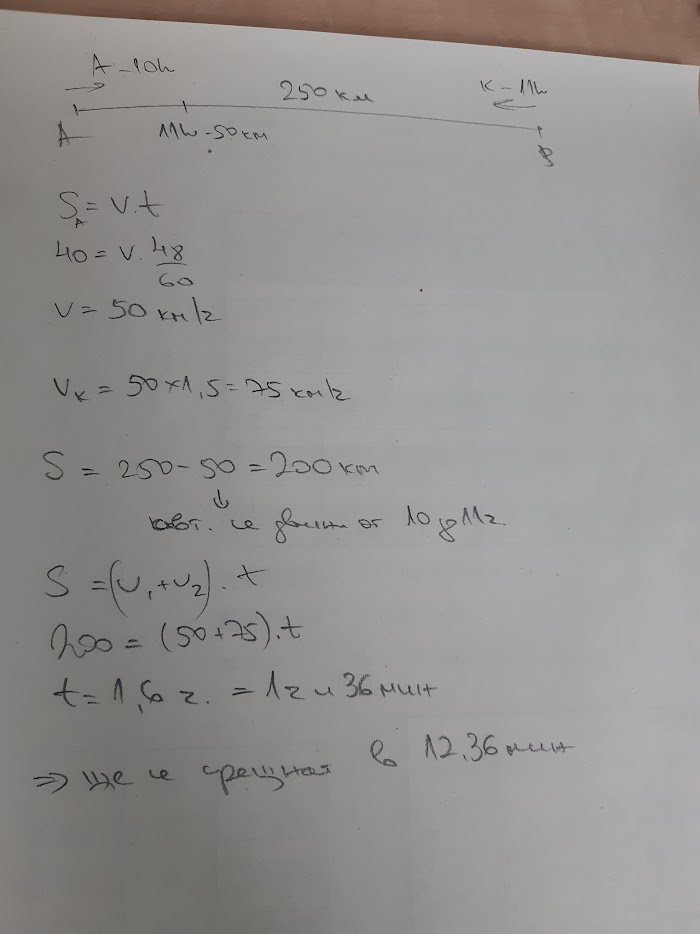 A - 10h
250 км
K - 11h
A
11h - 50 км
B
S_A = V.t
40 = V. 48/60
V = 50 км/г
V_K = 50 x 1,5 = 75 км/г
S = 250 - 50 = 200 км
↓
се от 10 до 11г.
S = (V₁ + V₂) . t
200 = (50 + 75) . t
t = 1,6 г. = 1г и 36 мин
⇒ ще се срещнат в 12.36 мин